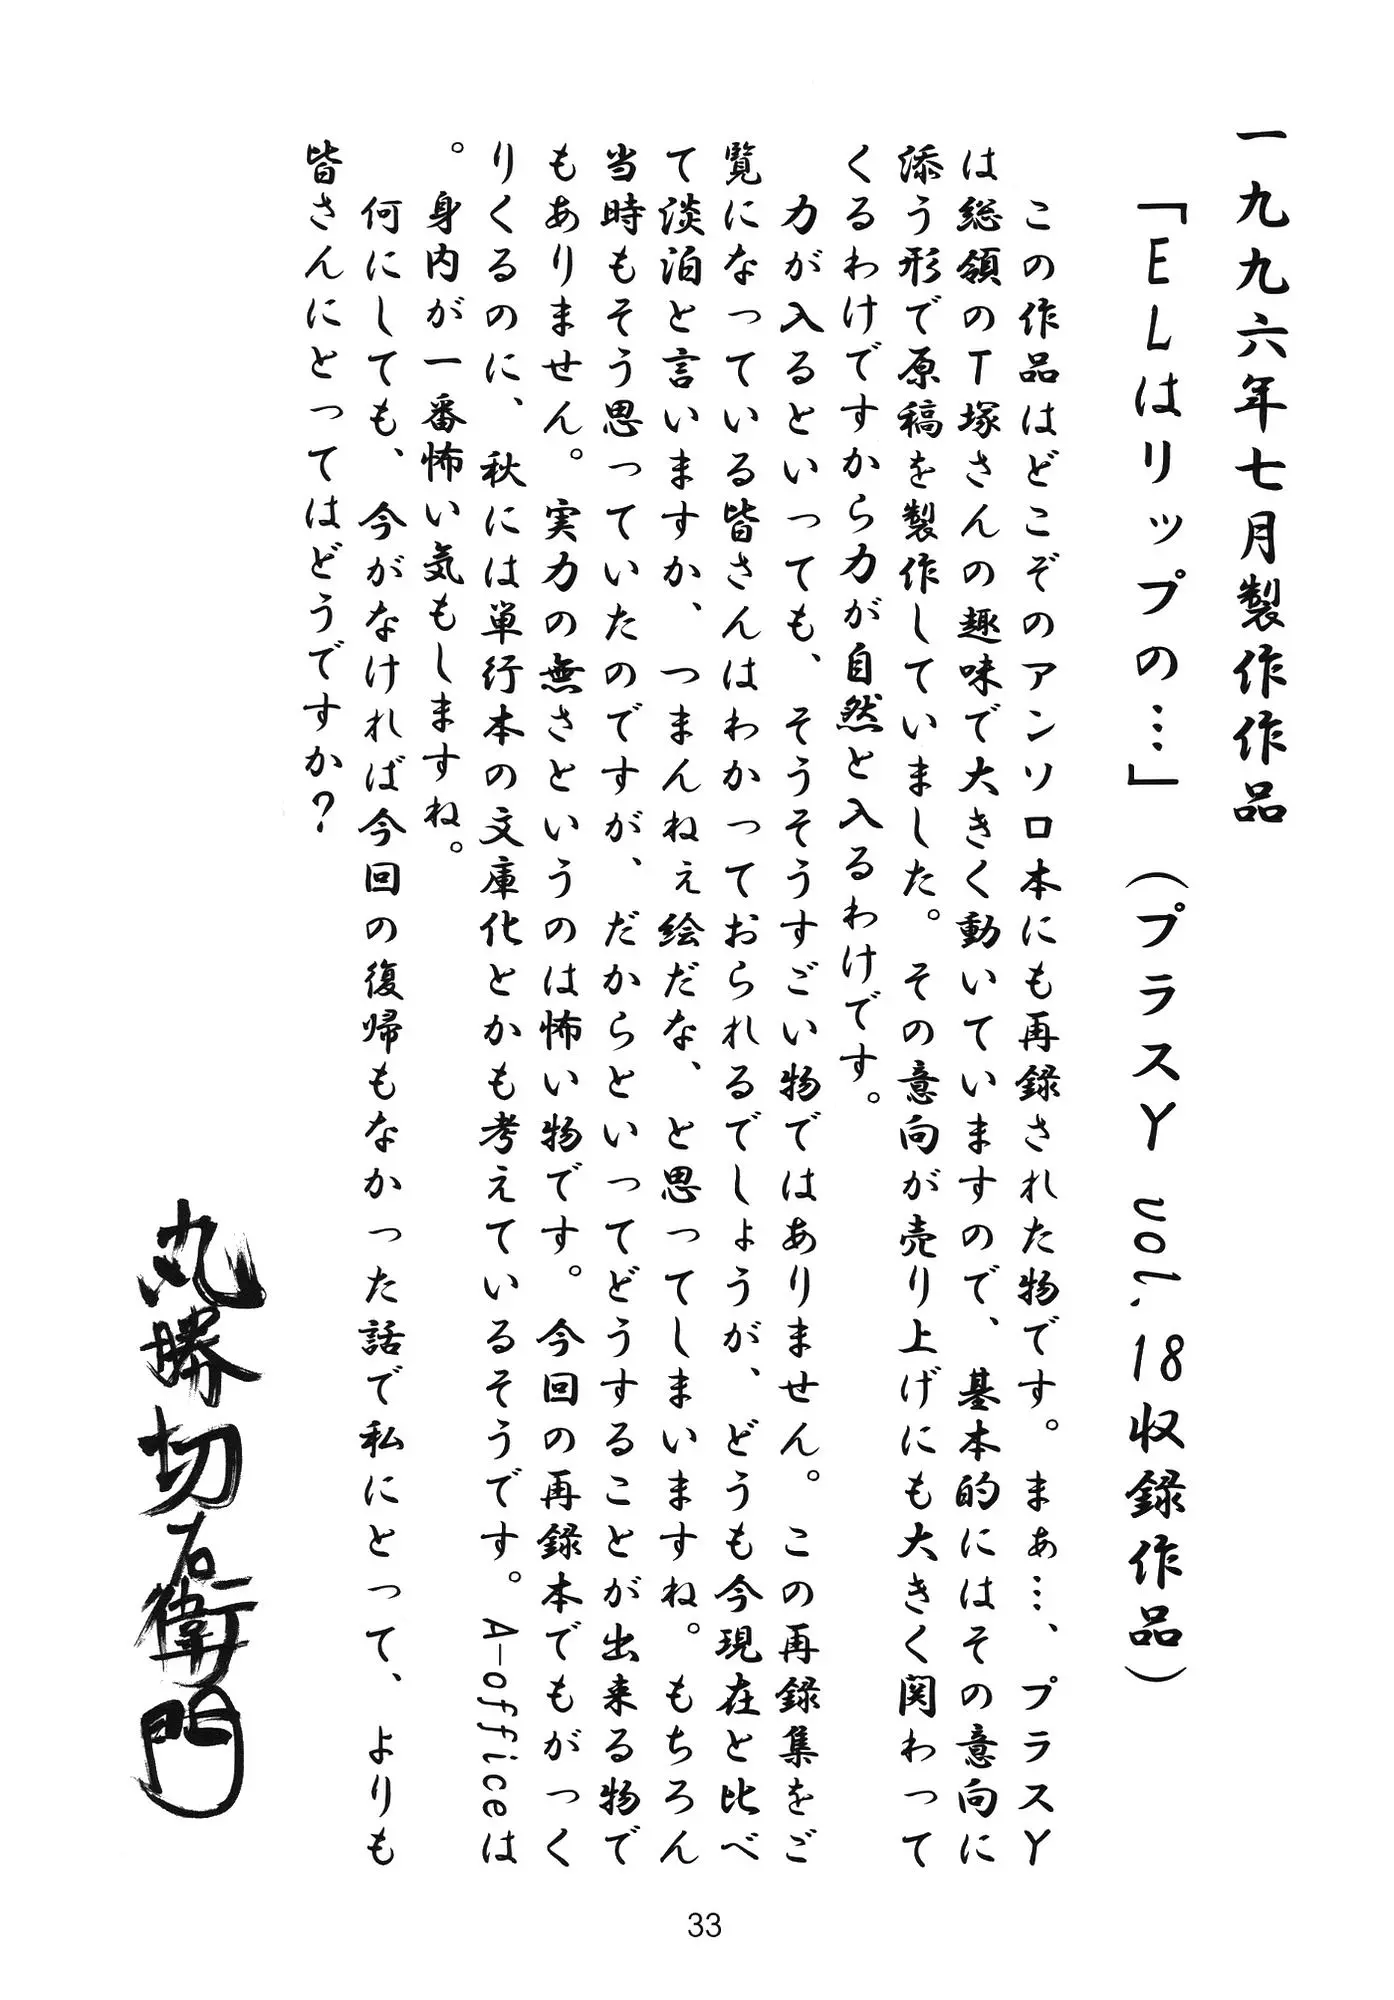 一九九六年七月製作作品
「ELはリップの…」（プラスY vol.18収録作品）
この作品はどこぞのアンソロ本にも再録された物です。まぁ…、プラスY
は総領のT塚さんの趣味で大きく動いていますので、基本的にはその意向に
添う形で原稿を製作していました。その意向が売り上げにも大きく関わって
くるわけですから力が自然と入るわけです。
力が入るといっても、そうそうすごい物ではありません。この再録集をご
覧になっている皆さんはわかっておられるでしょうが、どうも今現在と比べ
て淡泊と言いますか、つまんねぇ絵だな、と思ってしまいますね。もちろん
当時もそう思っていたのですが、だからといってどうすることが出来る物で
もありません。実力の無さというのは怖い物です。今回の再録本でもがっく
りくるのに、秋には単行本の文庫化とかも考えているそうです。A-officeは
。身内が一番怖い気もしますね。
何にしても、今がなければ今回の復帰もなかった話で私にとって、よりも
皆さんにとってはどうですか？
丸勝切右衛門
33